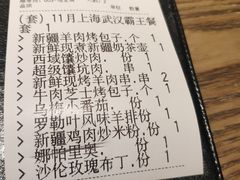 品项 单位 数量
(套)11月上海武汉霸王餐
套 1
- 新疆羊肉烤包子,个 1
- 新鲜现煮新疆奶茶壶 1
- 西域馕炒肉, 份 1
- 超级馕坑肉, 串 1
- 新疆鲜羊肉串,串 2
- 牛肉芝士烤包子,个 1
- 乌苏小番茄, 份 1
- 罗勒叶风味羊排份 1
- 新疆鸡肉炒米粉,份 1
- 娜帕里奥, 份 1
- 沙伦玫瑰布丁,份 1